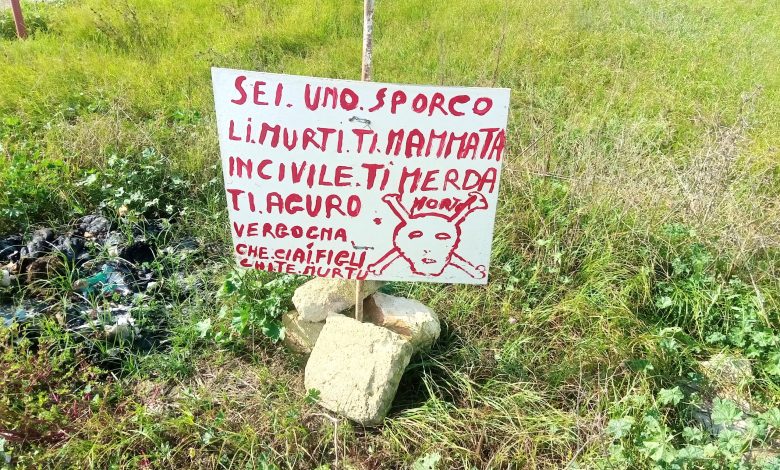 SEI. UNO. SPORCO
LI. MURTI. TI. MAMMATA
INCIVILE. TI MERDA
TI. AGURO MORTE
VERGOGNA
CHE. CIAI. FIGLI
CHITE. MURTU